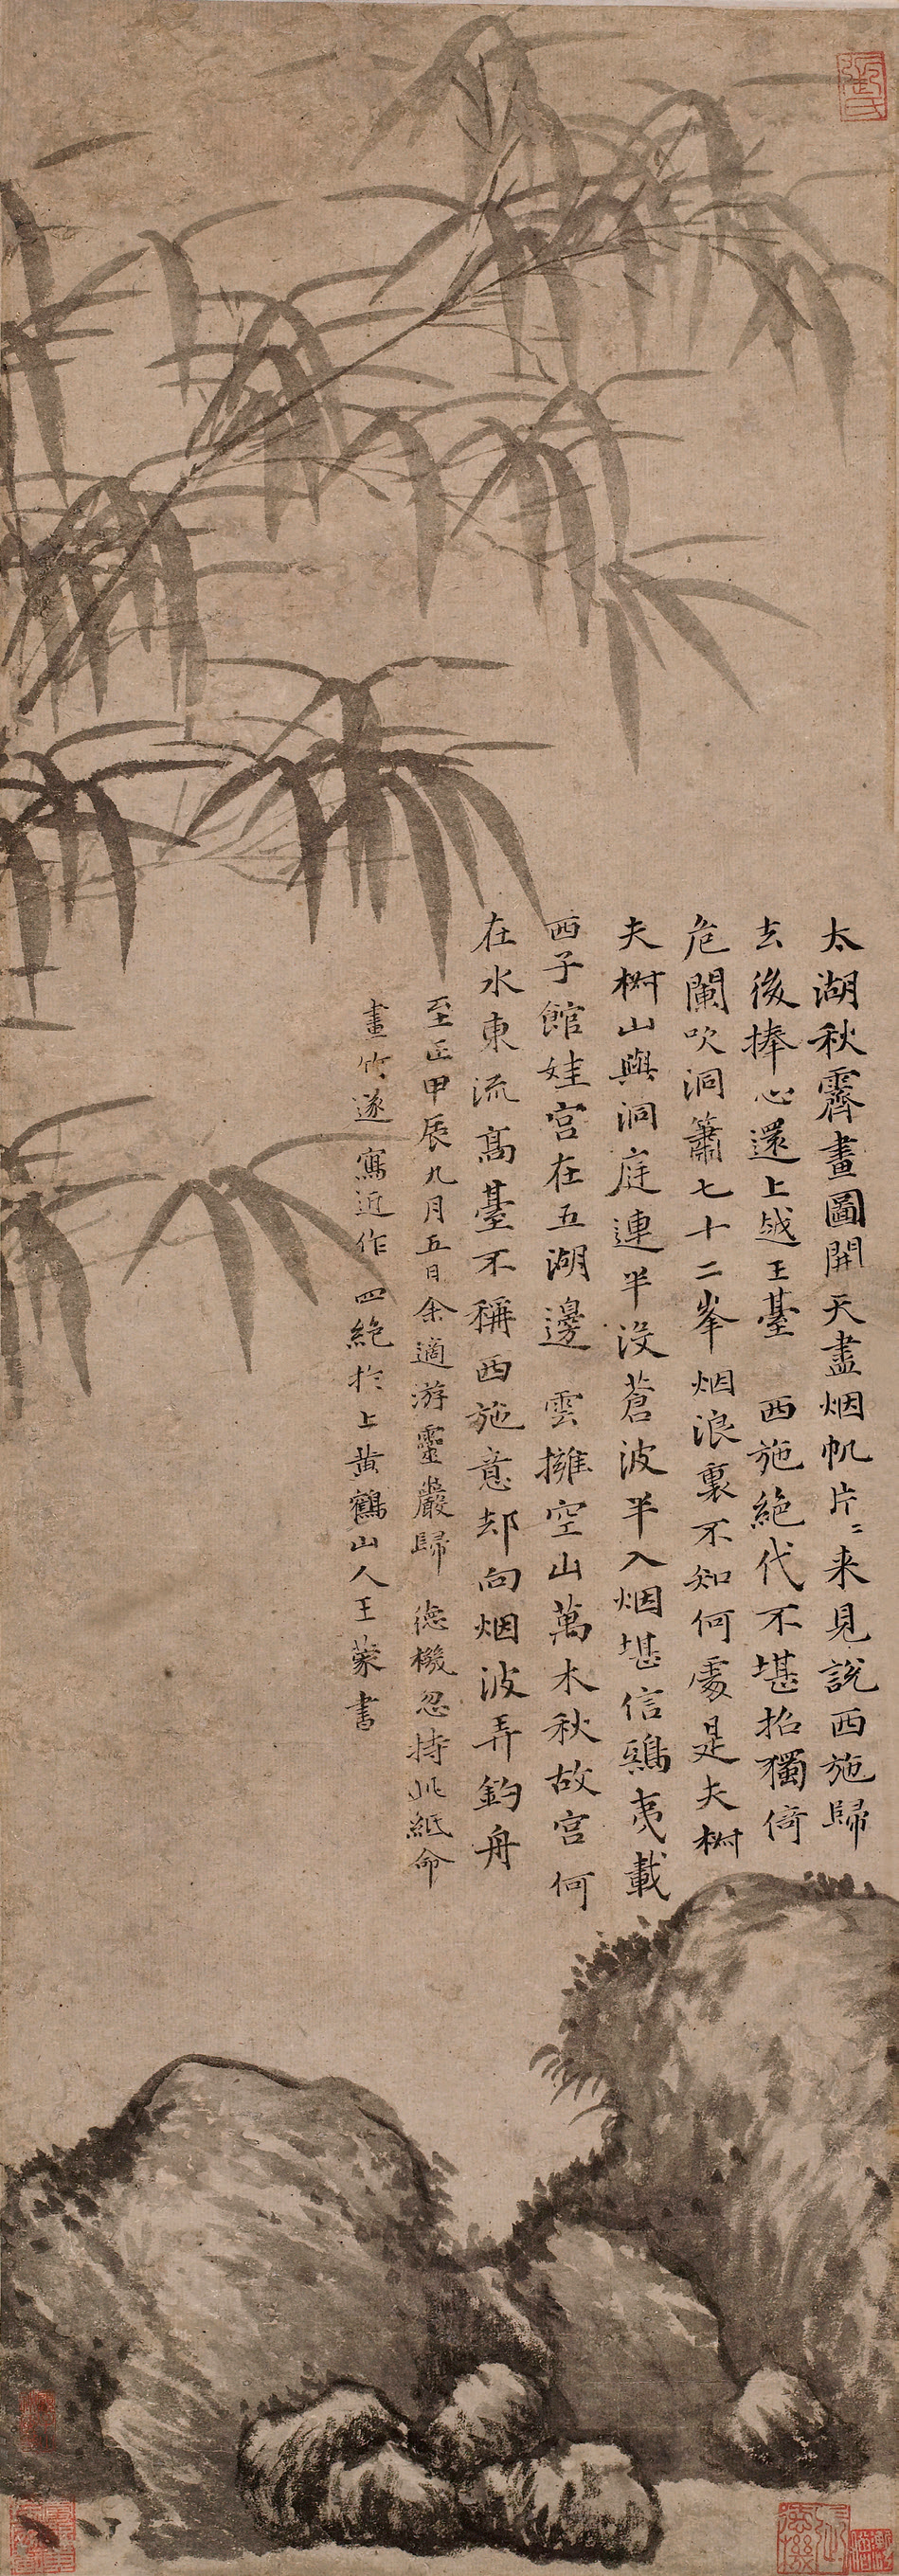 太湖秋霽畫圖開天盡烟帆片〻来見說西施歸
去後捧心還上越王臺 西施絕代不堪招獨倚
危闌吹洞簫七十二峯烟浪裏不知何處是夫椒
夫椒山與洞庭連半没蒼波半入烟堪信鴟夷載
西子館娃宮在五湖邊 雲擁空山萬木秋故宮何
在水東流高臺不稱西施意却向烟波弄釣舟
至正甲辰九月五日余適游靈巖歸 德機忽持此紙命
畫竹遂寫近作四絕扵上黃鶴山人王蒙書